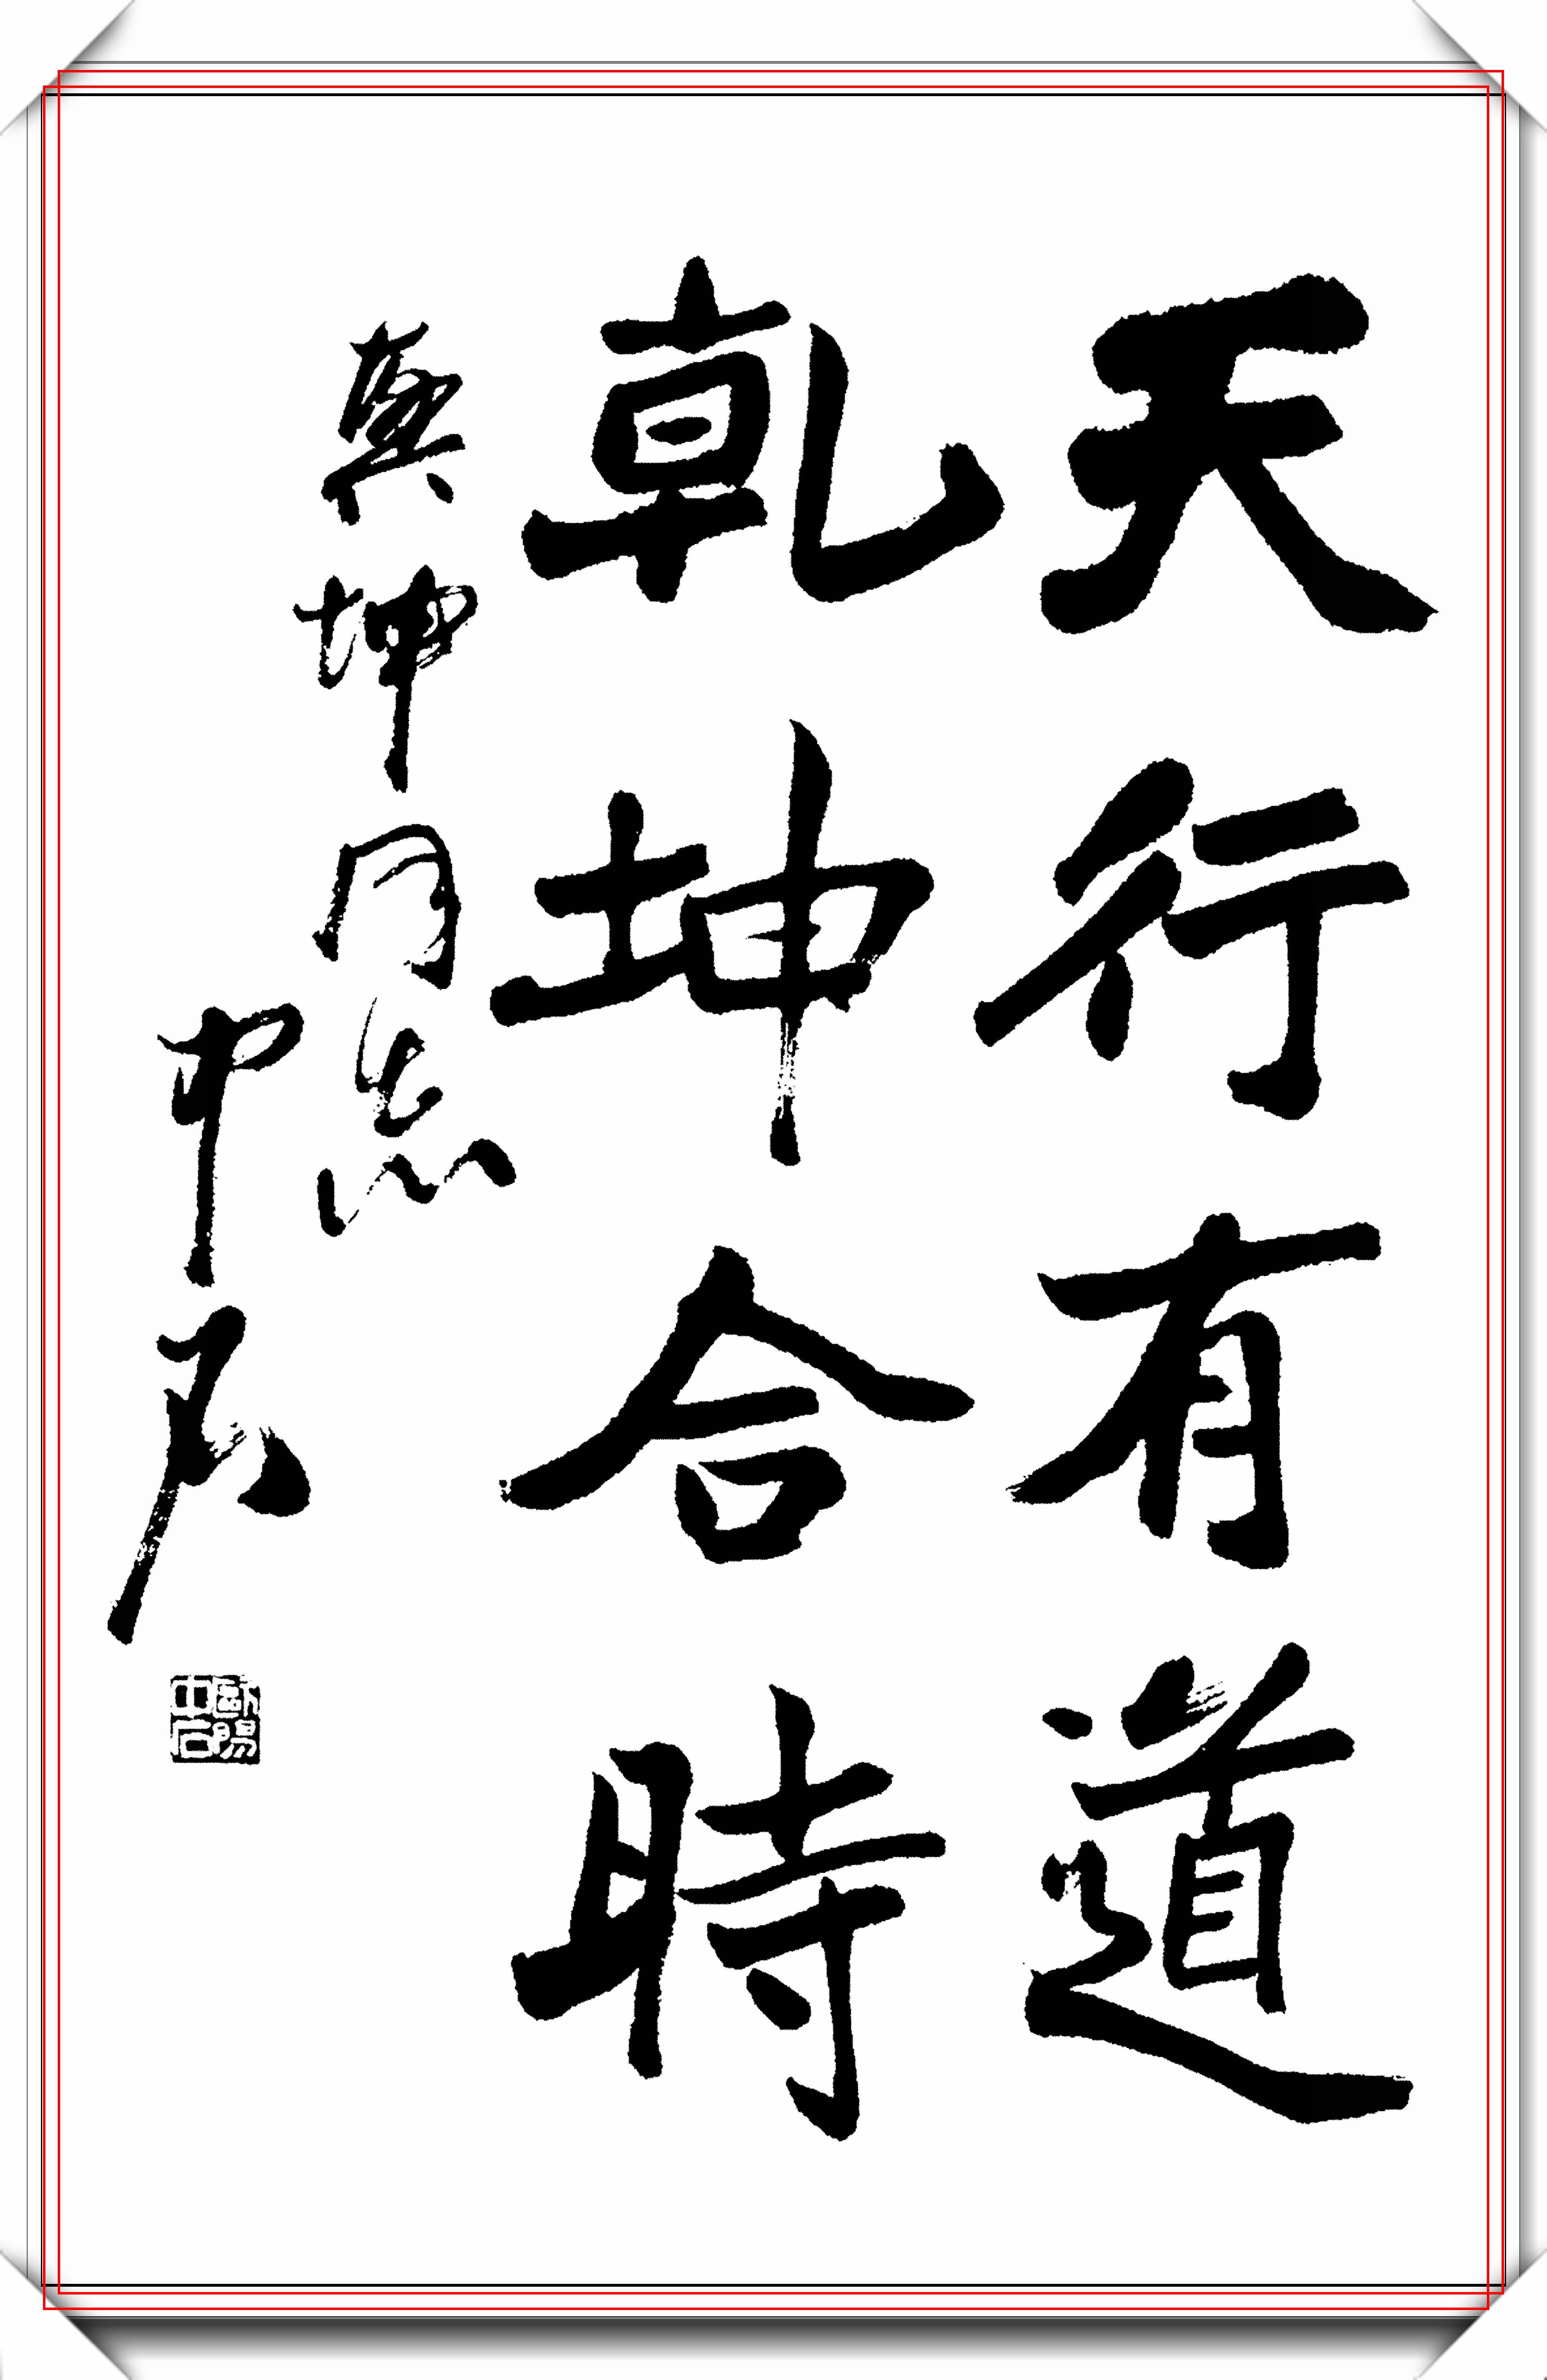 天行有道
乾坤合時
坤同志
中石
歐陽中石